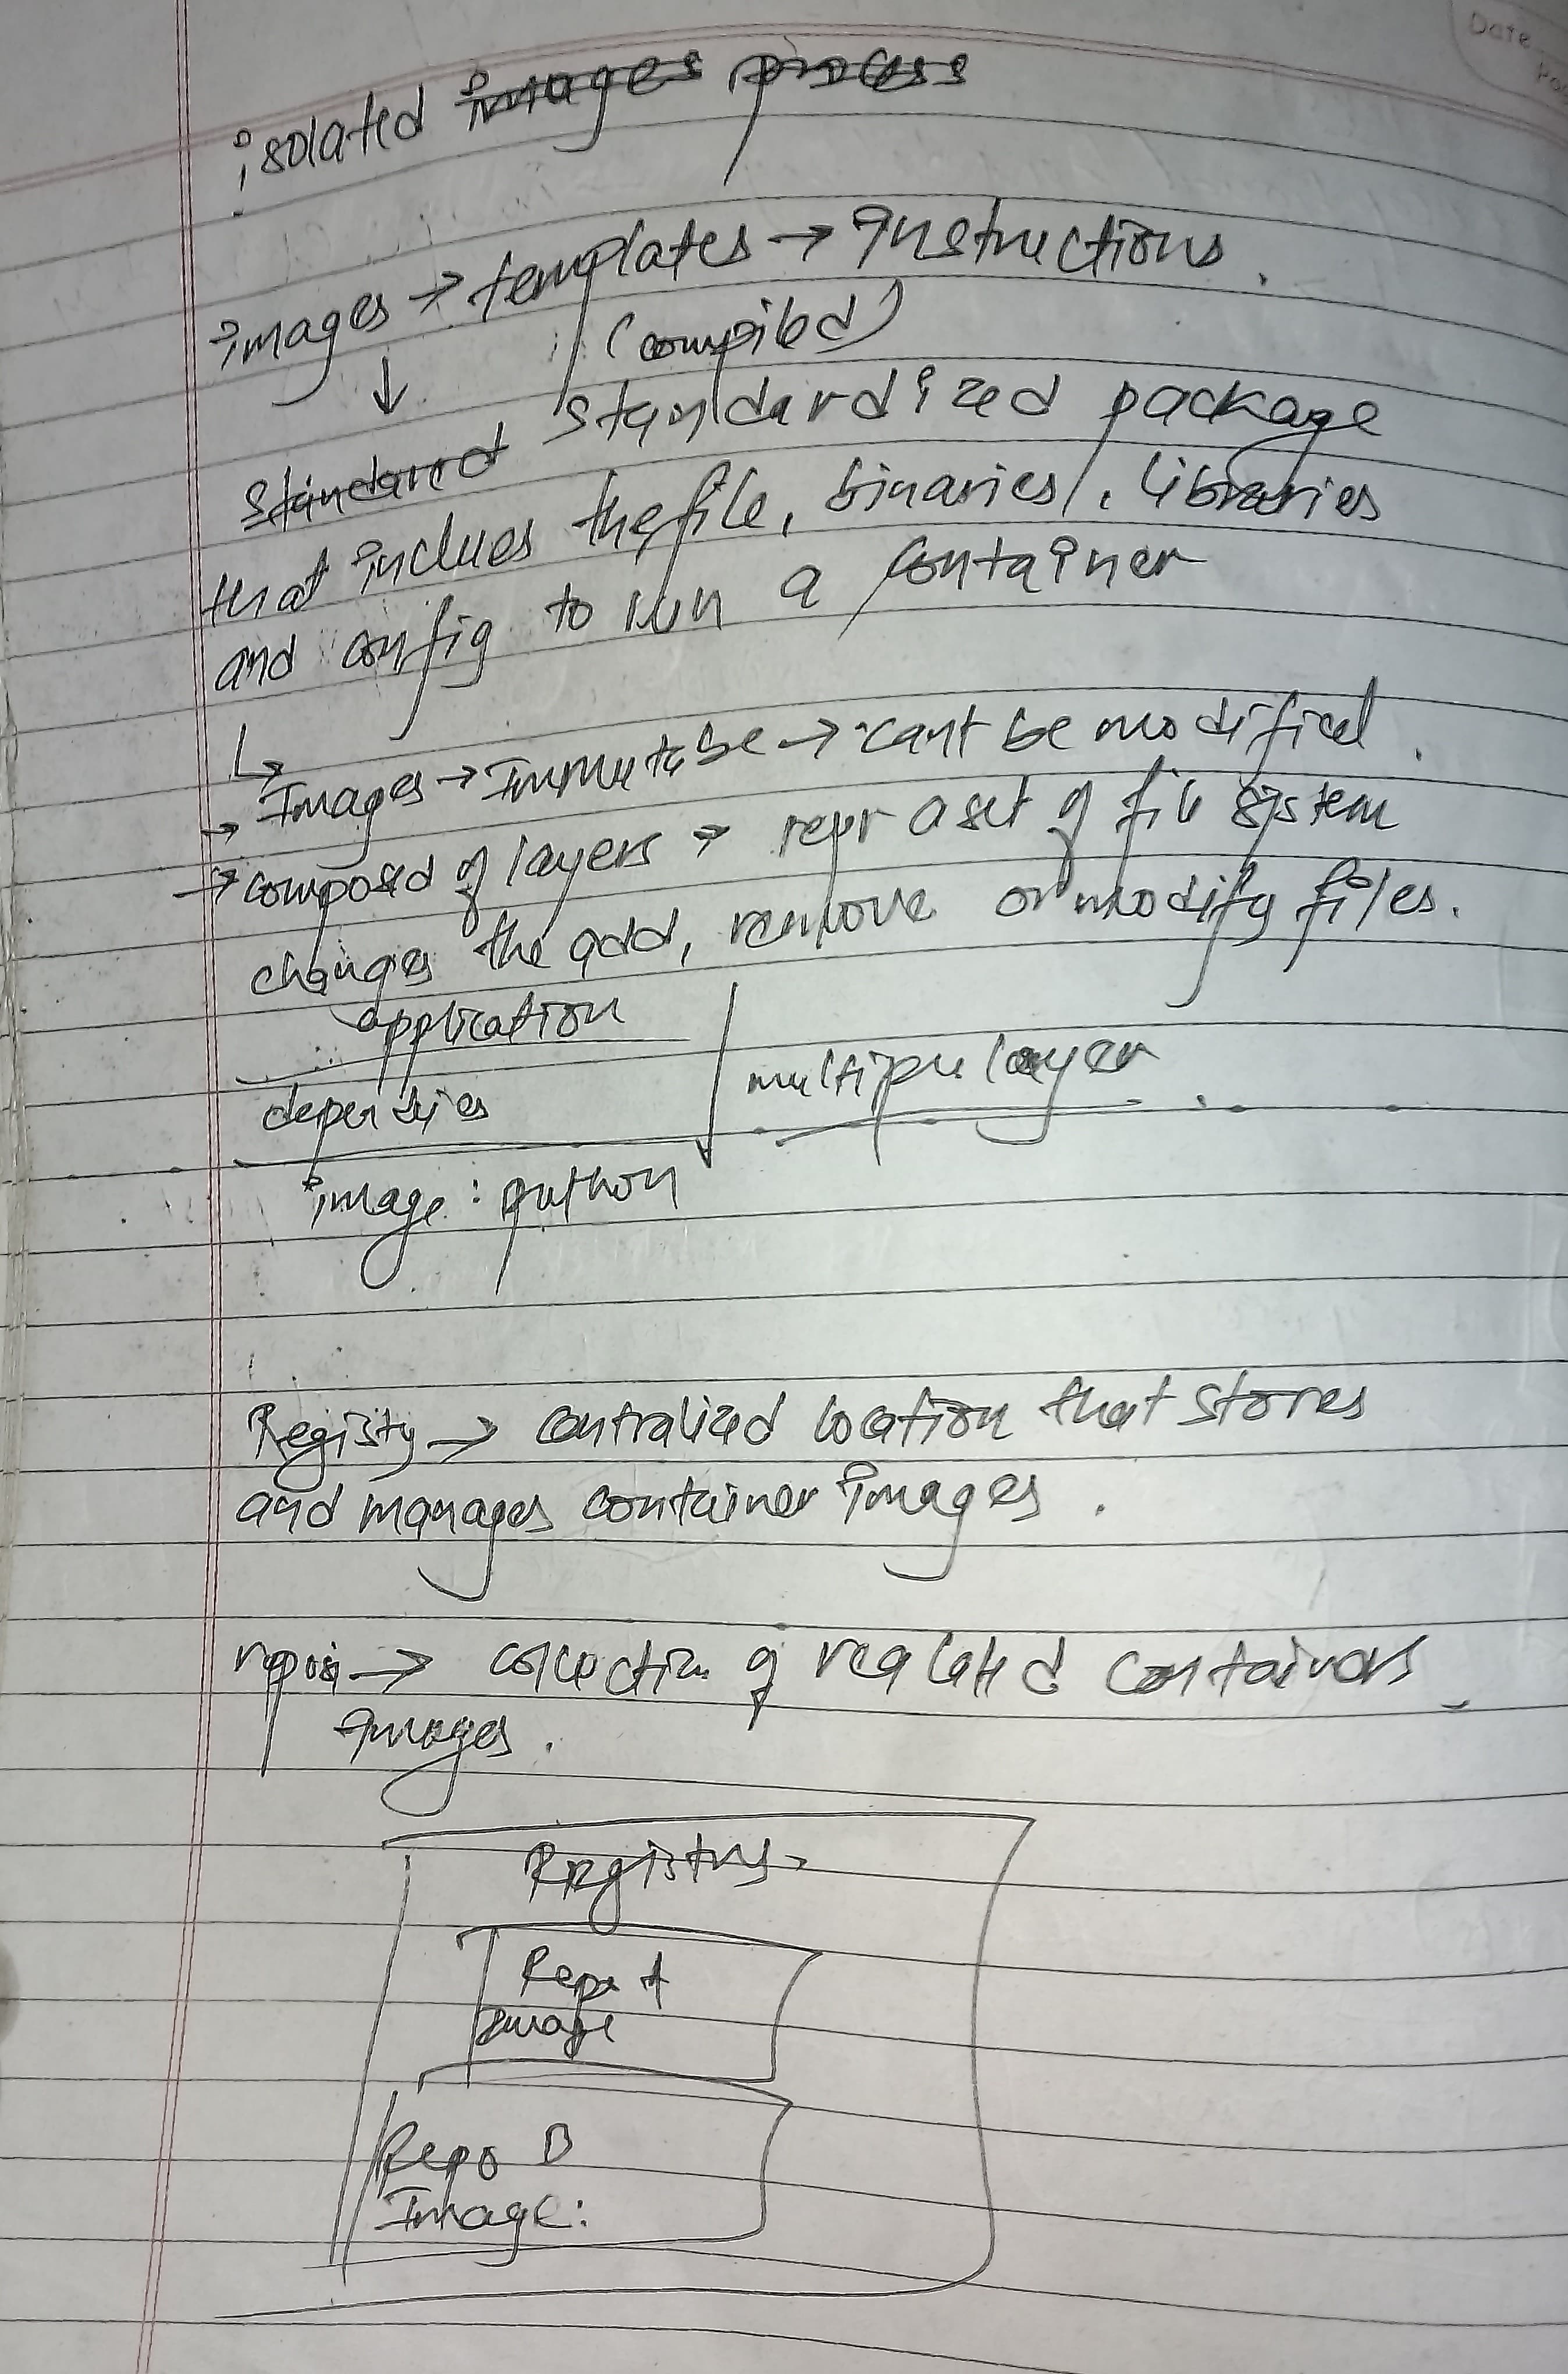 Date
isolated images process
images → templates → Instructions.
(compiled)
↓
Standared Standardized package
that inclues the file, binaries, libraries
and config to run a container
↳ Images → Immutabe → cant be modified.
→ composed of layers → repr a set of file system
changes the add, remove or modify files.
application
multiple layer
depensies
image : python
Registy → centralized location that stores
and manages container images.
→ collection of realated containers
Images.
Registry
Repo A
Image
Repo B
Image: